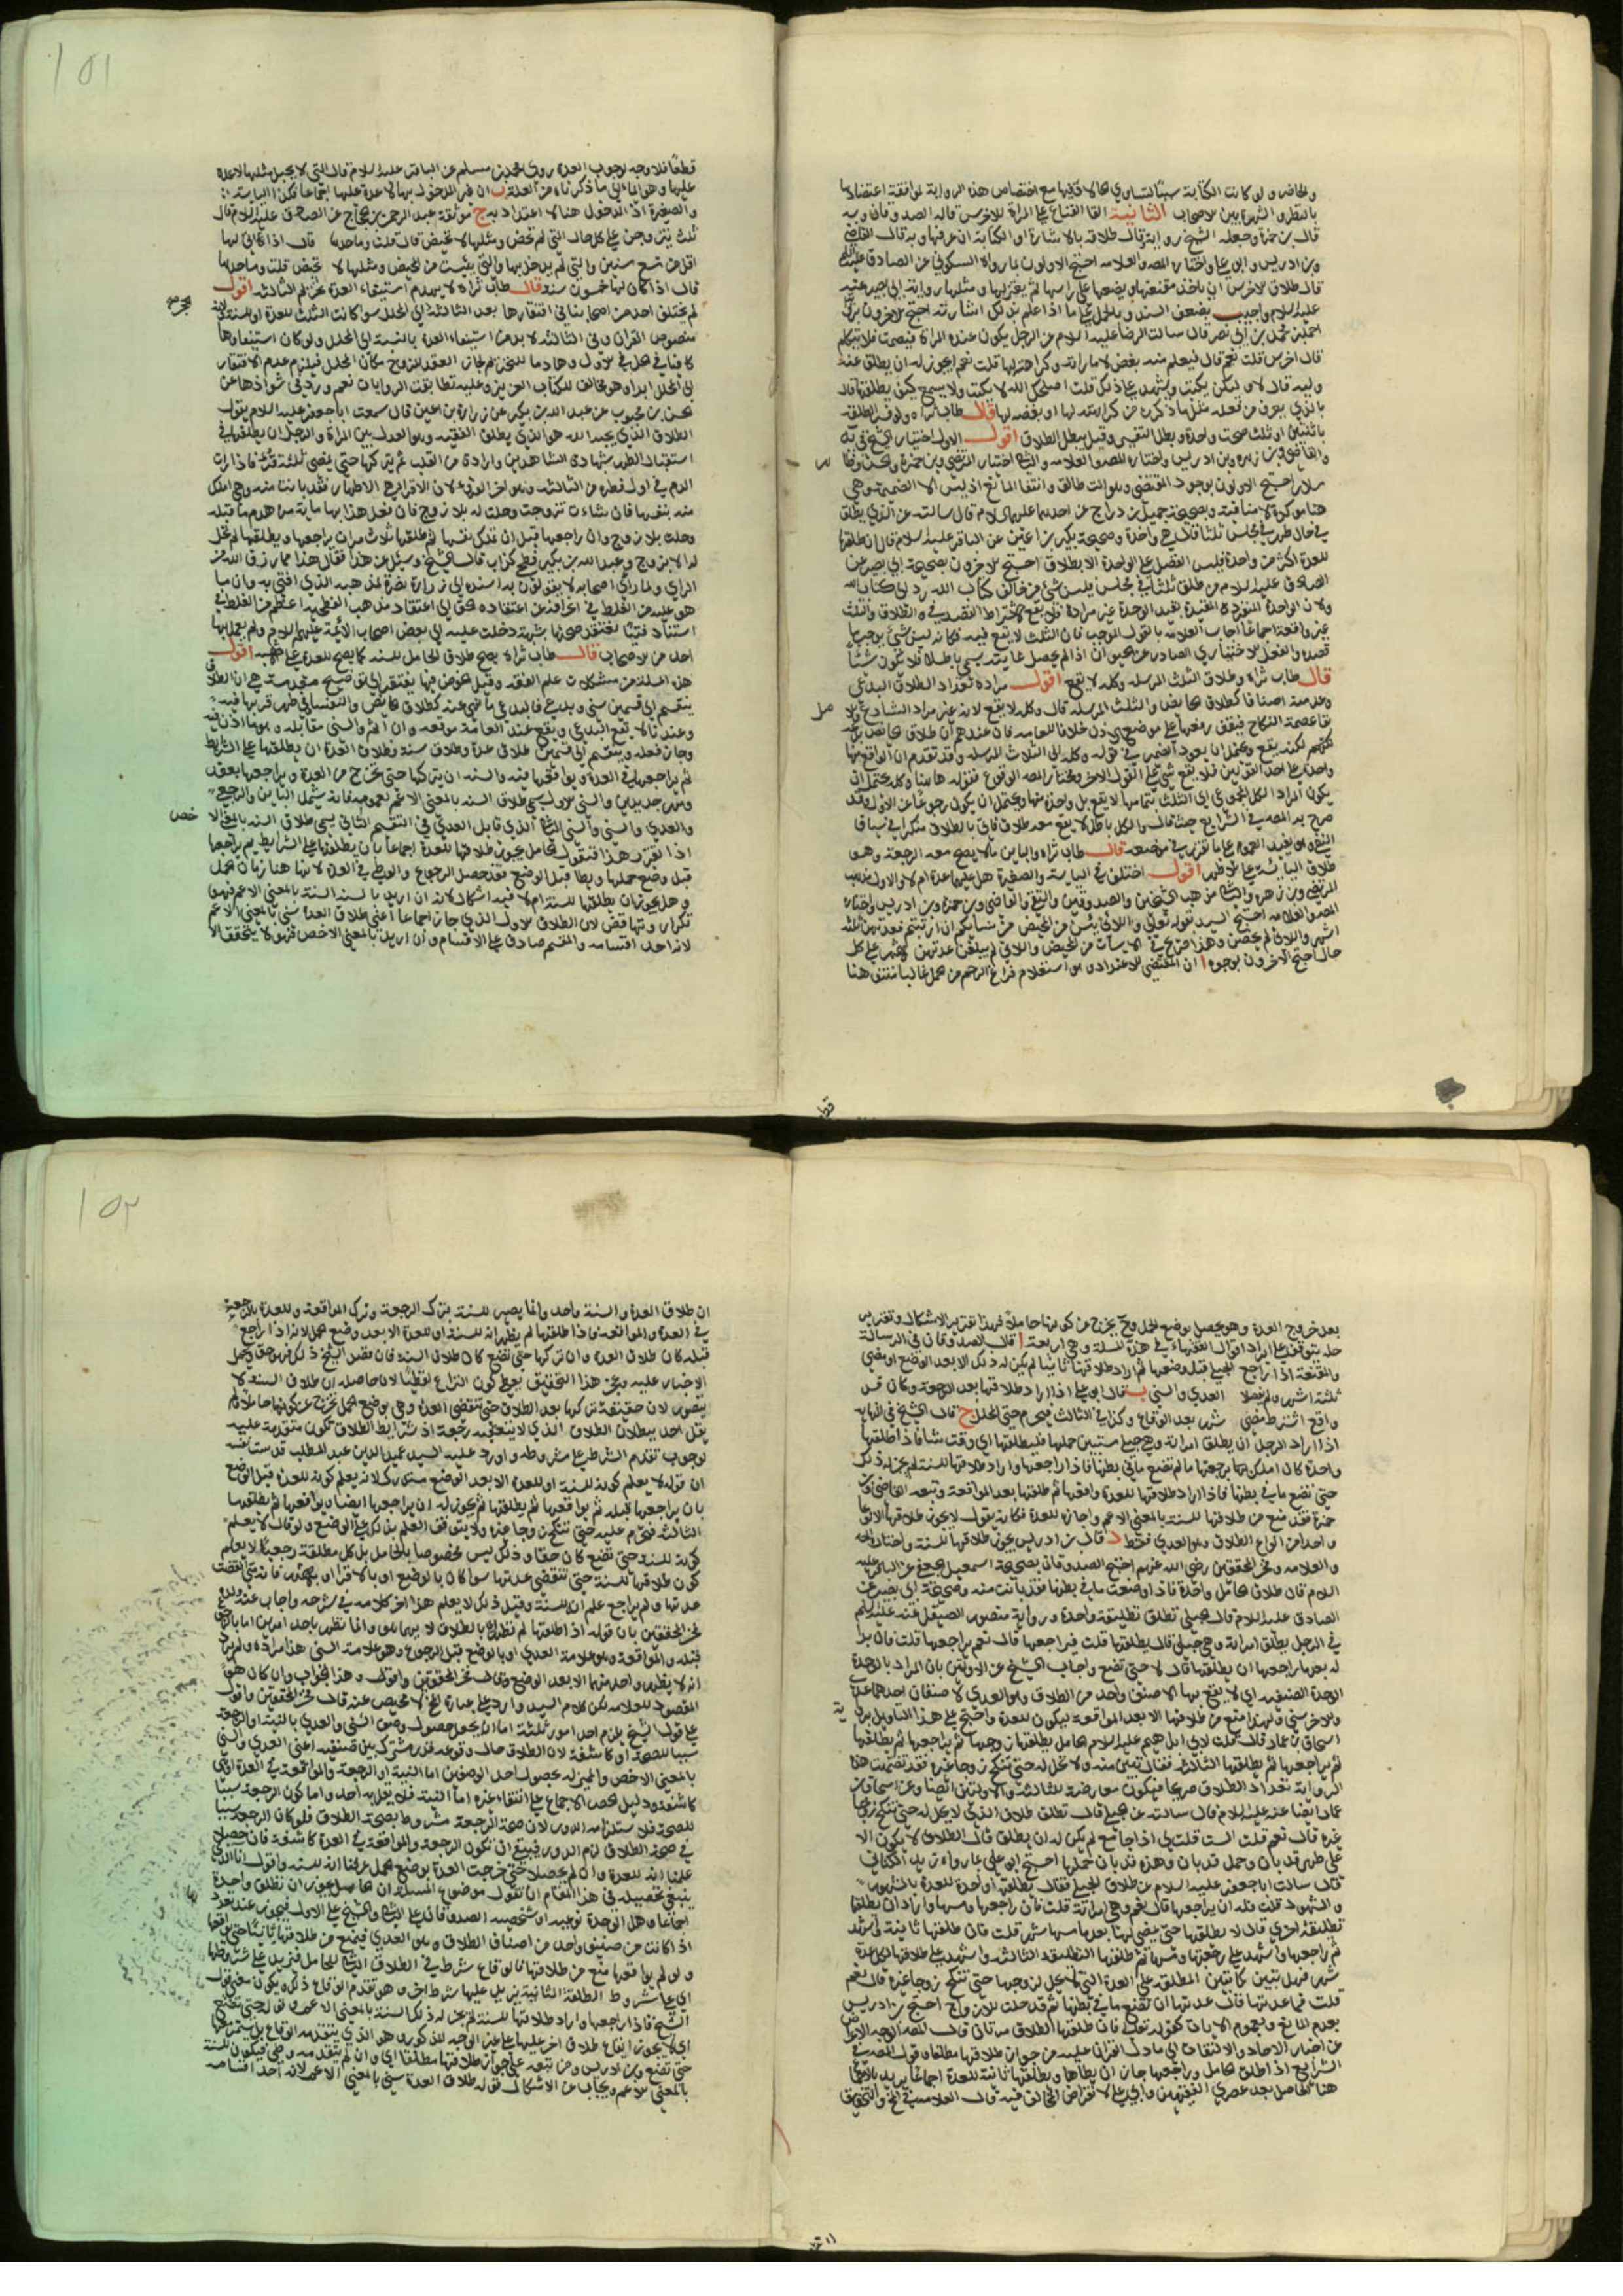 والحاضر ولو كانت الكتابة سببا لتساوي الحالا فيها مع اختصاص هذه الرواية لموافقة اعتضادها
بالنظر والشهرة بين الاصحاب الثانية القا القناع على المراة للاخرس قاله الصدوقان وبه
قال بن حمزة وجعله الشيخ رواية وقال طلاقه بالاشارة او الكتابة ان عرفها وبه قال القاضي
وبن ادريس وابو علي واختاره المصـ والعلامه احتج الاولون بما رواه السكوني عن الصادق عليه السلام
قال طلاق الاخرس ان ياخذ مقنعتها ويضعها على راسها ثم يعتزلها ومثلها رواية ابي بصير عنه
عليه السلام واجيب بضعف السند وبالحمل على ما اذا علم بذلك اشارته احتج الاخرون بـ
احمد بن محمد بن ابي نصر قال سالت الرضا عليه السلام عن الرجل يكون عنده المراة فيصمت فلا يتكلم
قال اخرس قلت نعم قال فيعلم منه بغض لامراته وكراهته لها قلت نعم ايجوز له ان يطلق عنه
وليه قال لا ولكن يكتب ويشهد على ذلك قلت اصلحك الله لا يكتب ولا يسمع كيف يطلقها قال
بالذي يعرف من فعله مثل ما ذكرت من كراهته لها او بغضه لها قال طاب ثراه ولو فسر الطلقة
باثنتين او ثلث صحت واحدة وبطل التفسير وقيل يبطل الطلاق اقول الاول اختيار الشيخ في يه
والقاضي وبن زهره وبن ادريس واختاره المصـ والعلامه والثاني اختيار المرتضى وبن حمزة والحسن وظا
سلار احتج الاولون بوجود المقتضي وهو انت طالق وانتفا المانع اذ ليس الا الضميمة وهي
هنا موكدة لا منافية وبصحيحة جميل بن دراج عن احدهما عليهما السلام قال سالته عن الذي يطلق
في حال طهر في مجلس ثلثا قال هي واحدة وصحيحة بكير بن اعين عن الباقر عليه السلام قال ان طلقها
للعدة اكثر من واحدة فليس الفضل على الواحدة الا بطلاق احتج الاخرون بصحيحة ابي بصير عن
الصادق عليه السلام من طلق ثلثا في مجلس فليس بشي من خالف كتاب الله رد الى كتاب الله
ولان الواحدة المنفردة المقيدة بقيد الوحدة غير مرادة فلا يقع لاشتراط القصد في الطلاق والثلث
غير واقعة اجماعا اجاب العلامه بالقول بالموجب فان الثلث لا يقع فيه
قصده والفعل الاختياري الصادر عن الحيوان اذا لم يحصل غايته يسمى باطلا فلا يكون شيئا
قال طاب ثراه وطلاق الثلث المرسله وكله لا يقع اقول مراده تعداد الطلاق البدعي
وعد منه اصنافا كطلاق الحائض والثلث المرسله قال وكله لا يقع لانه غير مراد الشارع ولا
بقا عصمة النكاح فيقف رفعها على موضع الاذن خلافا للعامه فان عندهم ان طلاق الحائض بدعه
لكنه يقع ويحتمل ان يعود الضمير في قوله وكله الى الثلاث المرسله وقد تقدم ان الواقع منها
واحدة على احد القولين فلا يقع شي على القول الاخر ومختار المصـ الوقوع فقوله هاهنا وكله يحتمل ان
يكون المراد الكل المجموعي اي الثلث بتمامها لا يقع بل واحدة منها ويحتمل ان يكون رجوعا عن الاول وقد
صرح به المصـ في الشرايع حيث قال والكل باطل لا يقع معه طلاق فاتى بالطلاق منكرا في سياق
النفي وهو يفيد العموم على ما تقرر في موضعه قال طاب ثراه والباين ما لا يصح معه الرجعة وهو
طلاق اليائسة على الاظهر اقول اختلف في اليائسة والصغيرة هل عليهما عدة ام لا والاول مذهب
المرتضى وبن زهره والثاني مذهب الشيخين والصدوقين والتقي والقاضي وبن حمزة وبن ادريس واختاره
المصـ والعلامه احتج السيد بقوله تعالى واللائي يئسن من المحيض من نسائكم ان ارتبتم فعدتهن ثلثة
اشهر واللائي لم يحضن وهذا صريح في الايسات من المحيض واللائي لم يبلغن عدتهن الاشهر على كل
حال احتج الاخرون بوجوه ا ان المقتضي للاعتداد وهو استعلام فراغ الرحم من الحمل غالبا منتف هنا
١٥١
قطعا فلا وجه لوجوب العدة روى محمد بن مسلم عن الباقر عليه السلام قال التي لا يحبل مثلها لا عدة
عليها وهو ايماء الى ما ذكرناه من العلة ب ان غير المدخول بها لا عدة عليها اجماعا فكذا اليائسة
والصغيرة اذ الدخول هنا لا اعتداد به ج موثقة عبد الرحمن بن الحجاج عن الصادق عليه السلام قال
ثلث يتزوجن على كل حال التي لم تحض ومثلها لا تحيض قال قلت وما حدها قال اذا اتى لها
اقل من تسع سنين والتي لم يدخل بها والتي يئست من المحيض ومثلها لا تحيض قلت وما حدها
قال اذا كان لها خمسون سنه قال طاب ثراه لا يهدم استيفاء العدة تحريم الثالثه اقول
لم يختلف احد من اصحابنا في افتقارها بعد الثالثة الى المحلل سوا كانت الثلث للعدة او للسنة لانه
منصوص القران وفي الثالثه لا بد من استيفاء العدة بالنسبة الى المحلل ولو كان استيفاؤها
كافيا في الحل في الاول وهادما للتحريم لجاز العقد للزوج مكان المحلل فيلزم عدم الافتقار
الى المحلل ابدا وهو مخالف للكتاب العزيز وعليه تطابقت الروايات نعم ورد في شواذها عن
الحسن بن محبوب عن عبد الله بن بكير عن زرارة بن اعين قال سمعت ابا جعفر عليه السلام يقول
الطلاق الذي يحبه الله هو الذي يطلق الفقيه وهو العدل بين المراة والرجل ان يطلقها في
استقبال الطهر بشهادة الشاهدين وارادة من القلب ثم يتركها حتى يمضي ثلثة قروء فاذا رات
الدم في اول قطره من الثالثه وهو اخر القروء لان الاقراء هي الاطهار فقد بانت منه وهي املك
منه بنفسها فان شاءت تزوجت وحلت له بلا زوج فان فعل هذا بها ماية مرة هدم ما قبله
وحلت بلا زوج وان راجعها قبل ان تملك نفسها ثم طلقها ثلاث مرات يراجعها ويطلقها لم تحل
له الا بزوج وعبد الله بن بكير فطحي كذاب قال الشيخ وسئل عن هذا فقال هذا مما رزق الله من
الراي ولما راى اصحابه لا يقولون به اسنده الى زرارة نصرة لمذهبه الذي افتى به وان ما
هو عليه من الغلط في اعتقاده الى اعتقاد مذهب الفطحية اعظم من الغلط في
استناد فتيا يعتقد صحتها بشبهة دخلت عليه الى بعض اصحاب الائمة عليهم السلام ولم يعمل بها
احد من الاصحاب قال طاب ثراه يصح طلاق الحامل للسنه كما يصح للعدة على الاشبه اقول
هذه المسلة من مشكلات علم الفقه وقبل الخوض فيها يفتقر الى توضيح مقدمة هي ان الطلاق
ينقسم الى قسمين سني وبدعي فالبدعي ما نهي عنه كطلاق الحائض والنفساء في طهر قربها فيه
وعندنا لا يقع البدعي ويقع عند العامة موقعه وان اثم والسني مقابله وهو ما اذن فيه
وجاز فعله وينقسم الى قسمين طلاق عدة وطلاق سنة وطلاق العدة ان يطلقها على الشرايط
ثم يراجعها في العدة ويواقعها فيه والسنه ان يتركها حتى تخرج من العدة ويراجعها بعقد
ومهر جديدين والسني الاول يسمى طلاق السنه بالمعنى الاعم لعمومه فانه يشمل الباين والرجعي
والعدي والسني والسني الثاني الذي قابل العدي في التقسيم الثاني يسمى طلاق السنه بالمعنى الا
اذا تقرر هذا فنقول الحامل يجوز طلاقها للعدة اجماعا بان يطلقها على الشرايط ثم يراجعها
قبل وضع حملها ويطا قبل الوضع فقد حصل الرجوع والوطي في العدة لانها هنا زمان الحمل
وهل يجوز ان يطلقها للسنة ام لا فيه اشكال لانه ان اريد بالسنة السنة بالمعنى الاعم فهو
تكرار وتناقض لان الطلاق الاول الذي جاز اجماعا اعني طلاق العدة سني بالمعنى الاعم
لانه احد اقسامه والمقسم صادق على الاقسام وان اريد بالمعنى الاخص فهو لا يتحقق الا
خص
بعد خروج العدة وهو يحصل بوضع الحمل وح يخرج من كونها حاملا فهذا تقرير الاشكال وتقرير
حله يتوقف على ايراد اقوال الفقهاء في هذه المسلة وهي اربعة ا قال الصدوقان في الرسالة
والمقنعة اذا راجع الحبلى قبل وضعها ثم اراد طلاقها ثانيا لم يكن له ذلك الا بعد الوضع او مضي
ثلثة اشهر ولم يفصلا العدي والسني ب قال ابو علي اذا اراد طلاقها بعد الرجعة وكان قد
واقع اشترط مضي شهر بعد الوقاع وكذا في الثالث فيحرم حتى المحلل ج قال الشيخ في النهايه
اذا اراد الرجل ان يطلق امراته وهي حبلى مستبين حملها فليطلقها اي وقت شا فاذا طلقها
واحدة كان املك بها برجعتها ما لم تضع ما في بطنها فاذا راجعها واراد طلاقها للسنة لم يجز له ذلك
حتى تضع ما في بطنها فاذا اراد طلاقها للعدة واقعها ثم طلقها بعد المواقعة وتبعه القاضي وبن
حمزة فقد منع من طلاقها للسنة بالمعنى الاعم واجازه للعدة فكانه يقول لا يجوز طلاقها الا نوعا
واحدا من انواع الطلاق وهو العدي فقط د قال بن ادريس يجوز طلاقها للسنة واختاره المصـ
والعلامه وفخر المحققين رضي الله عنهم احتج الصدوقان بصحيحة اسمعيل الجعفي عن الباقر عليه
السلام قال طلاق الحامل واحدة فاذا وضعت ما في بطنها فقد بانت منه وصحيحة ابي بصير عن
الصادق عليه السلام قال الحبلى تطلق تطليقة واحدة ورواية منصور الصيقل عنه عليه السلم
في الرجل يطلق امراته وهي حبلى قال يطلقها قلت فيراجعها قال نعم يراجعها قلت فان بدا
له بعد ما راجعها ان يطلقها قال لا حتى تضع واجاب الشيخ عن الاولتين بان المراد بالوحدة
الوحدة الصنفيه اي لا يقع بها الا صنف واحد من الطلاق وهو العدي لا صنفان احدهما عدي
والاخر سني ولهذا منع من طلاقها الا بعد المواقعة ليكون للعدة واحتج على هذا التاويل برواية
اسحاق بن عمار قال قلت لابي ابراهيم عليه السلام الحامل يطلقها زوجها ثم يراجعها ثم يطلقها
ثم يراجعها ثم يطلقها الثالثه فقال تبين منه ولا تحل له حتى تنكح زوجا غيره فقد تضمنت هذه
الرواية تعداد الطلاق صريحا فيكون معارضة للثالثه والاولتين ايضا وعن اسحاق بن
عمار ايضا عنه عليه السلام قال سالته عن الحبلى قال تطلق طلاق الذي لا يحل له حتى تنكح زوجا
غيره قال نعم قلت الست قلت لي اذا جامع لم يكن له ان يطلق قال الطلاق لا يكون الا
على طهر قد بان وحمل قد بان وهذه قد بان حملها احتج ابو علي بما رواه يزيد الكناسي
قال سالت ابا جعفر عليه السلام عن طلاق الحبلى فقال يطلقها واحدة للعدة بالشهور
والشهود قلت فله ان يراجعها قال نعم وهي امراته قلت فان راجعها ومسها واراد ان يطلقها
تطليقة اخرى قال لا يطلقها حتى يمضي لها بعد ما مسها شهر قلت فان طلقها ثانية ثم
راجعها واشهد على رجعتها ومسها ثم طلقها التطليقة الثالثه واشهد على طلاقها لكل عدة
شهر فهل تبين كما تبين المطلقه على العدة التي لا تحل لزوجها حتى تنكح زوجا غيره قال نعم
قلت فما عدتها قال عدتها ان تضع ما في بطنها ثم قد حلت للازواج احتج بن ادريس
بعدم المانع وبعموم الايات كقوله تعالى فان طلقها الطلاق مرتان قال المصـ الوجه الاعراض
عن اخبار الاحاد والالتفات الى ما دل القران عليه من جواز طلاقها مطلقا وقول المصـ في
الشرايع اذا طلق الحامل وراجعها جاز ان يطاها ويطلقها ثانية للعدة اجماعا يريد بالاجماع
هنا الحاصل بعد عصري الفقيهين وابي علي لانقراض المخالف فيه قال العلامة في المخ والتحقيق
١٥٢
ان طلاق العدة والسنة واحد وانما يصير للسنة بترك الرجعة وترك المواقعة وللعدة بالرجعة
في العدة والمواقعة فاذا طلقها لم يظهر انه للسنة او للعدة الا بعد وضع الحمل لانه اذا راجع
قبله كان طلاق العدة وان تركها حتى تضع كان طلاق السنة فان قصد الشيخ ذلك فهو حق وتحمل
الاخبار عليه
يتصور لان حقيقته تركها بعد الطلاق حتى تنقضي العدة وهي بوضع الحمل تخرج عن كونها حاملا ولم
يقل احد ببطلان الطلاق الذي لا يتعقبه رجعة اذ شرايط الطلاق تكون متقدمة عليه
لوجوب تقدم الشرط على مشروطه واورد عليه السيد عميد الدين عبد المطلب قدست نفسه
ان قوله لا يعلم كونه للسنة او للعدة الا بعد الوضع مستدرك لانه يعلم كونه للعدة قبل الوضع
بان يراجعها قبله ثم يواقعها ثم يطلقها ثم يجوز له ان يراجعها ايضا ويواقعها ثم يطلقها
الثالثه فتحرم عليه حتى تنكح زوجا غيره ولا يتوقف العلم بذلك على الوضع ولو قال لا يعلم
كونه للسنة حتى تضع كان حقا وذلك ليس مخصوصا بالحامل بل كل مطلقة رجعيا لا يعلم
كون طلاقها للسنة حتى تنقضي عدتها سوا كان بالوضع او بالاقراء او بالاشهر فانه متى انقضت
عدتها ولم يراجع علم انه للسنة وقبل ذلك لا يعلم هذا اخر كلامه في شرحه واجاب عنه
فخر المحققين بان قوله اذا طلقها لم تظهر
قبله والمواقعة وهو علامة العدي او بالوضع قبل الرجوع وهو علامة السني هذا مراده ولم يرد
انه لا يظهر واحد منهما الا بعد الوضع وقال فخر المحققين واقول وهذا الجواب وان كان هو
المقصود للعلامه لكن كلام السيد وارد على عبارة المخ لا محيص عنه قال فخر المحققين واقول
على قول الشيخ يلزم احد امور ثلثة
بالمعنى الاخص
كاشفة ودليل الحصر الاجماع على انتفاء غيره اما النية فلم يقل به احد واما كون الرجعة سببا
للصحة فلاستلزامه الدور لان صحة الرجعة مشروطة بصحة الطلاق فلو كان الرجوع سببا
في صحة الطلاق لزم الدور فيبقى ان تكون الرجعة والمواقعة في العدة كاشفة فان حصلا
علمنا انه للعدة وان لم يحصلا حتى خرجت العدة بوضع الحمل عرفنا انه للسنة واقول
ينبغي تحصيله في هذا المقام ان نقول موضوع المسلة ان الحامل يجوز ان تطلق واحدة
اجماعا وهل الوحدة نوعية او شخصية الصدوقان على الثاني والشيخ على الاول فيجوز عنده
اذا كانت من صنف واحد من اصناف الطلاق وهو العدي فيمنع من طلاقها ثانيا حتى يواقعها
ولو لم يواقعها منع من طلاقها فالوقاع شرط في الطلاق الثاني للحامل فيزيد على شروطها
اي على شروط الطلقة الثانية يزيد عليها شرط اخر وهو تقدم الوقاع ذكره
الشيخ فاذا راجعها واراد طلاقها للسنة لم يجز له ذلك السنة بالمعنى الاعم وقوله حتى تضع
اي لا يجوز ايقاع طلاق اخر عليها على غير الوجه المذكور وهو الذي يتقدمه الوقاع
حتى تضع وبن ادريس ومن تبعه على جواز طلاقها مطلقا اي وان لم يتقدمه وطي فيكون للسنة
بالمعنى الاعم ويجاب عن الاشكال قوله طلاق العدة سني بالمعنى الاعم لانه احد اقسامه